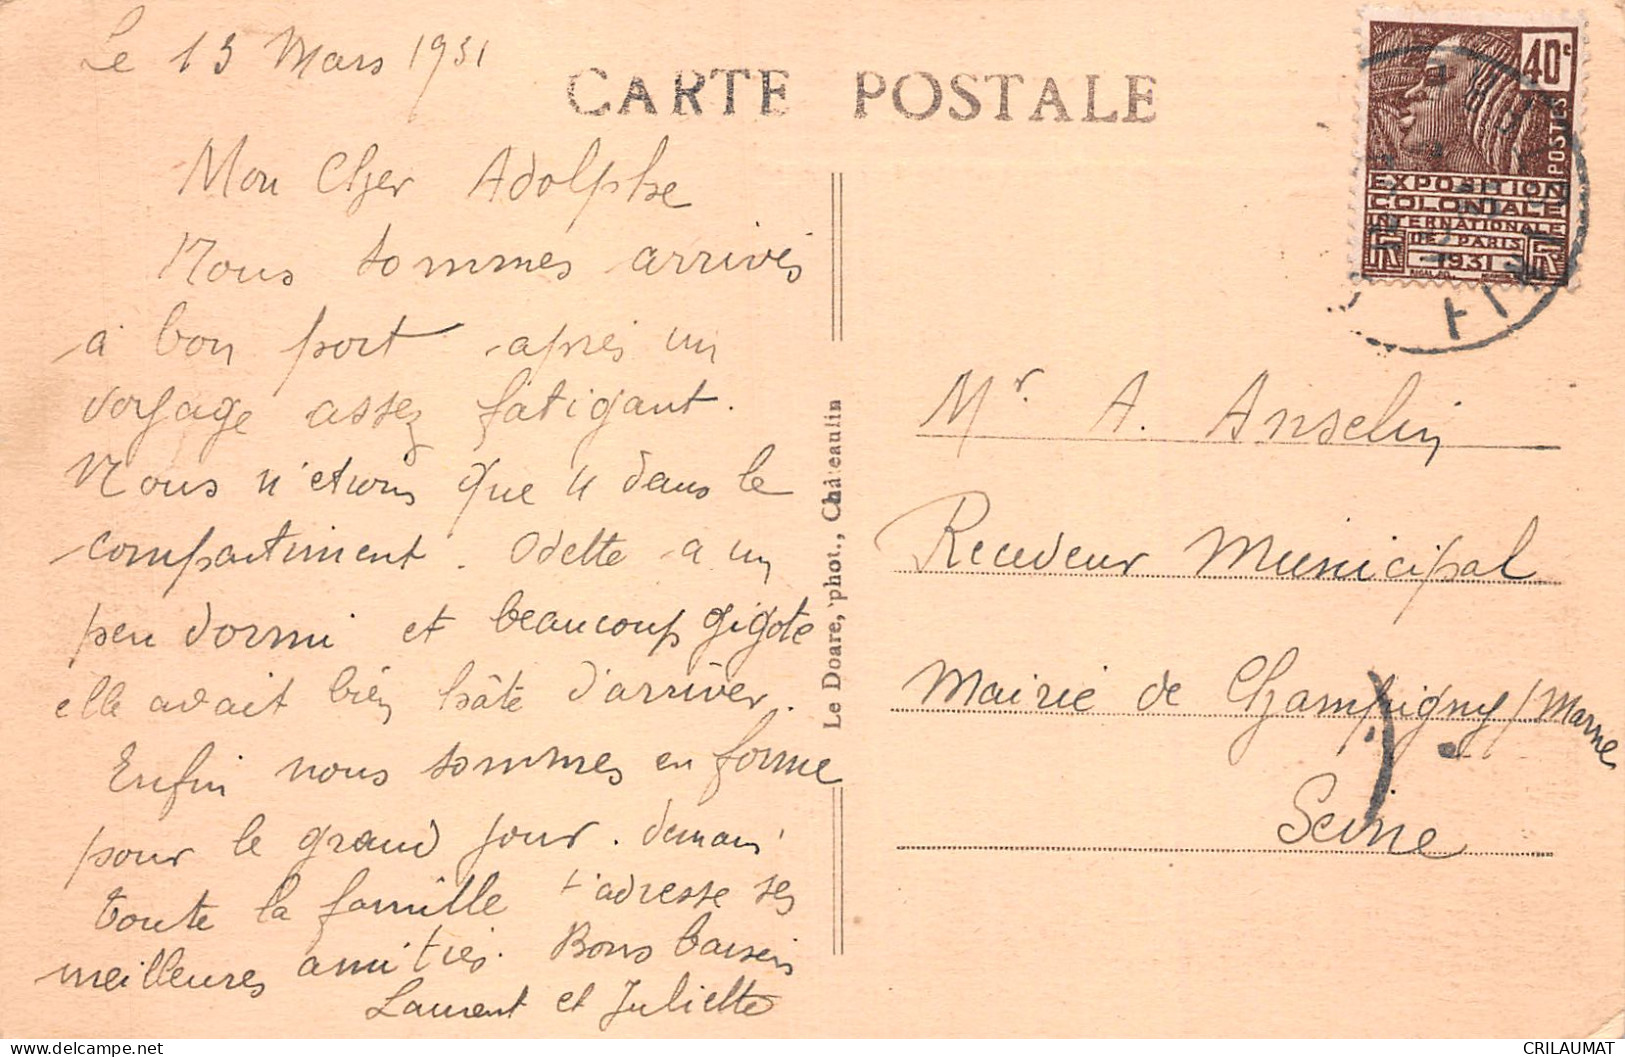 Le 13 Mars 1931
CARTE POSTALE
Mon Cher Adolphe
Nous sommes arrivés
à bon port après un
voyage assez fatigant.
Nous n'étions que 4 dans le
compartiment. Odette a un
peu dormi et beaucoup gigoté
elle avait bien hâte d'arriver.
Enfin nous sommes en forme
pour le grand jour. demain
Toute la famille t'adresse ses
meilleures amitiés. Bons baisers
Laurent et Juliette
Le Doare, phot., Châteaulin
40c
POSTES
EXPOSITION
COLONIALE
INTERNATIONALE
DE PARIS
1931
Mr. A. Anselin
Receveur Municipal
Mairie de Champigny/Marne
Seine
delcampe.net
CRILAUMAT